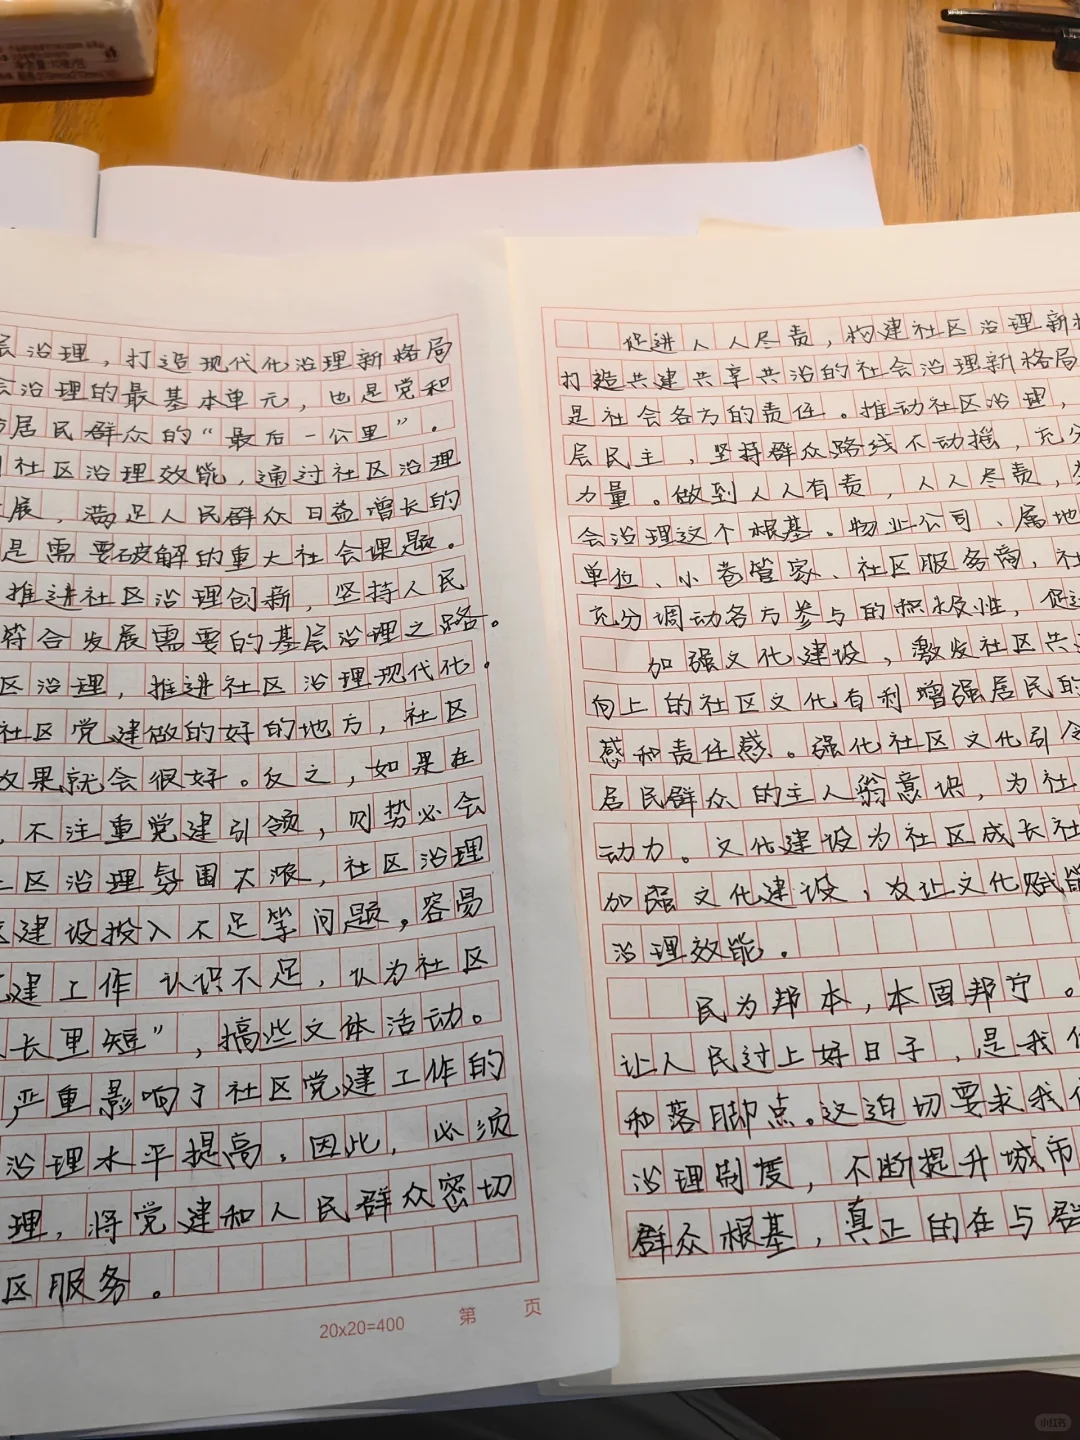 层治理，打造现代化治理新格局
会治理的最基本单元，也是党和
居民群众的“最后一公里”。
社区治理效能，通过社区治理
展，满足人民群众日益增长的
是需要破解的重大社会课题。
推进社区治理创新，坚持人民
符合发展需要的基层治理之路。
区治理，推进社区治理现代化。
社区党建做的好的地方，社区
效果就会很好。反之，如果在
，不注重党建引领，则势必会
区治理氛围不浓，社区治理
建设投入不足等问题，容易
建工作认识不足，认为社区
长里短”，搞些文体活动。
严重影响了社区党建工作的
治理水平提高。因此，必须
理，将党建和人民群众密切
区服务。
20x20=400 第 页
促进人人尽责，构建社区治理新格
打造共建共享共治的社会治理新格局
是社会各方的责任。推动社区治理，
层民主，坚持群众路线不动摇，充分
力量。做到人人有责，人人尽责，
会治理这个根基。物业公司、属地
单位、小巷管家、社区服务商，社
充分调动各方参与的积极性，促进
加强文化建设，激发社区共
向上的社区文化有利增强居民的
感和责任感。强化社区文化引领
居民群众的主人翁意识，为社
动力。文化建设为社区成长社
加强文化建设，发让文化赋能
治理效能。
民为邦本，本固邦宁。
让人民过上好日子，是我们
和落脚点。这迫切要求我们
治理制度，不断提升城市
群众根基，真正的在与群
小红书